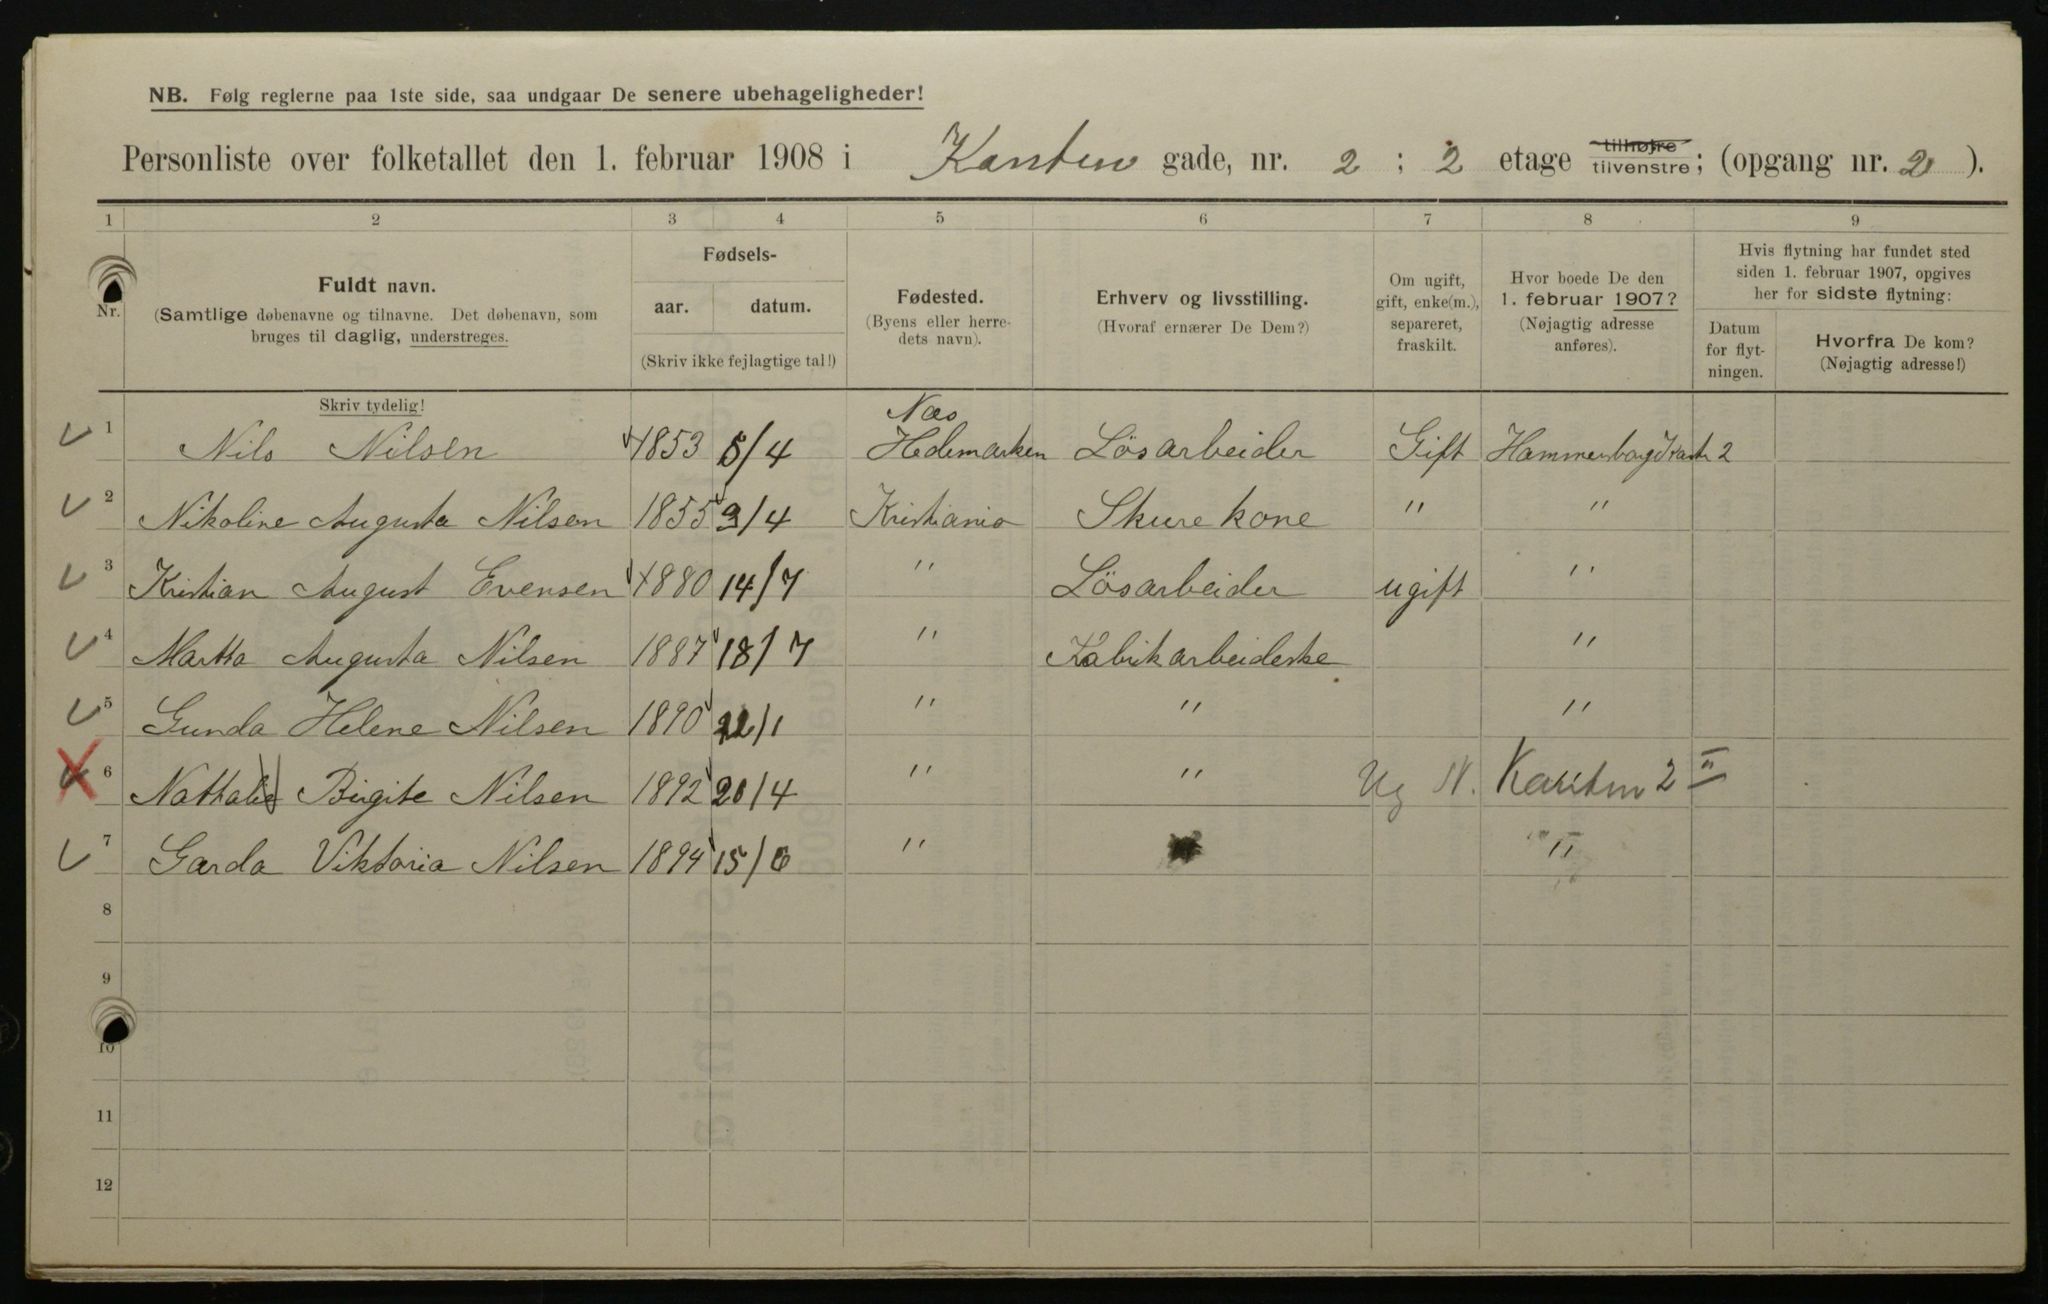 NB. Følg reglerne paa 1ste side, saa undgaar De senere ubehageligheder!
Personliste over folketallet den 1. februar 1908 i Karsten gade, nr. 2 ; 2 etage tilhøjre tilvenstre; (opgang nr. 2 ).
1 2 3 4 5 6 7 8 9
Nr.
Fuldt navn.
(Samtlige døbenavne og tilnavne. Det døbenavn, som
bruges til daglig, understreges.
Skriv tydelig!
Fødsels-
aar. datum.
(Skriv ikke fejlagtige tal!)
Fødested.
(Byens eller herre-
dets navn).
Erhverv og livsstilling.
(Hvoraf ernærer De Dem?)
Om ugift,
gift, enke(m.),
separeret,
fraskilt.
Hvor boede De den
1. februar 1907?
(Nøjagtig adresse
anføres).
Hvis flytning har fundet sted
siden 1. februar 1907, opgives
her for sidste flytning:
Datum
for flyt-
ningen.
Hvorfra De kom?
(Nøjagtig adresse!)
Næs
1 Nils Nilsen 1853 5/4 Hedemarken Lösarbeider Gift 2
2 Nikoline Augusta Nilsen 1855 9/4 Kristiania Skurekone " "
3 Kristian August Evensen 1880 14/7 " Lösarbeider ugift "
4 Martha Augusta Nilsen 1887 18/7 " Fabrikarbeiderske "
5 Gunda Helene Nilsen 1890 22/1 " " "
6 Nathalie Birgite Nilsen 1892 20/4 " " Ug N. Karsten 2 II
7 Garda Viktoria Nilsen 1894 15/6 " "
8
9
10
11
12